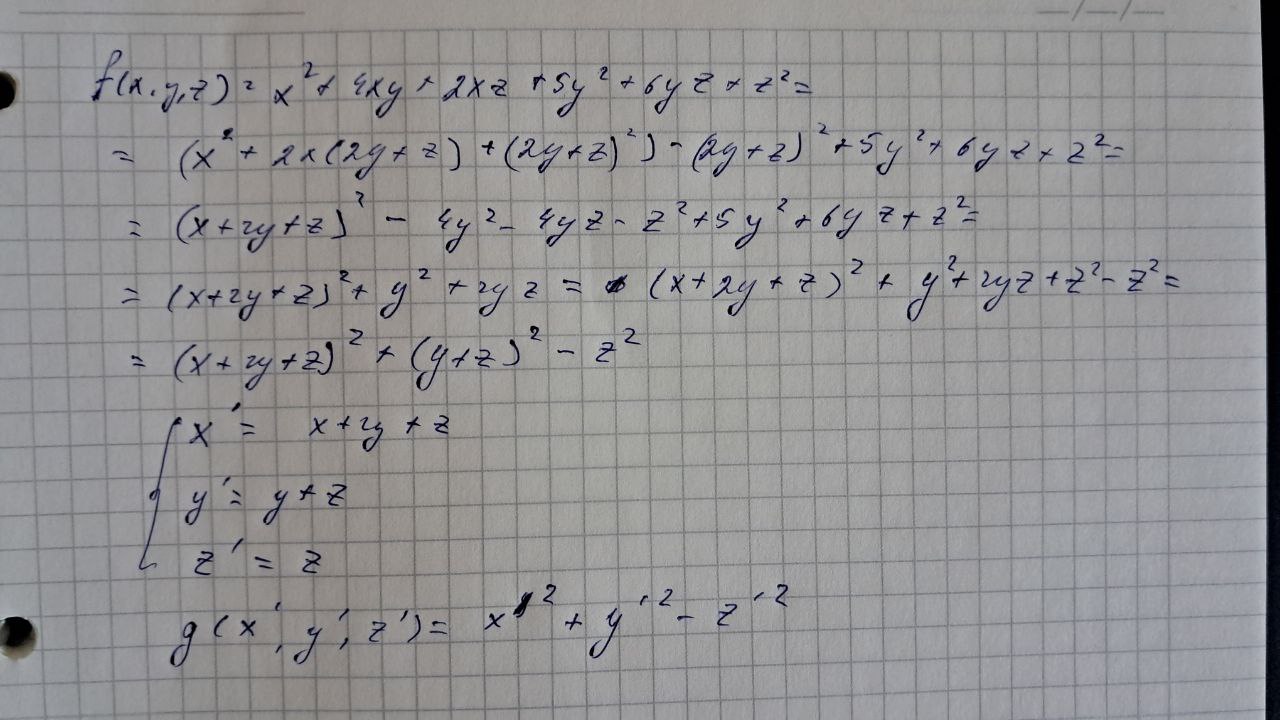 f(x,y,z) = x² + 4xy + 2xz + 5y² + 6yz + z² =
= (x² + 2x(2y+z) + (2y+z)²) - (2y+z)² + 5y² + 6yz + z² =
= (x+2y+z)² - 4y² - 4yz - z² + 5y² + 6yz + z² =
= (x+2y+z)² + y² + 2yz = (x+2y+z)² + y² + 2yz + z² - z² =
= (x+2y+z)² + (y+z)² - z²
x' = x+2y+z
y' = y+z
z' = z
g(x', y', z') = x'² + y'² - z'²